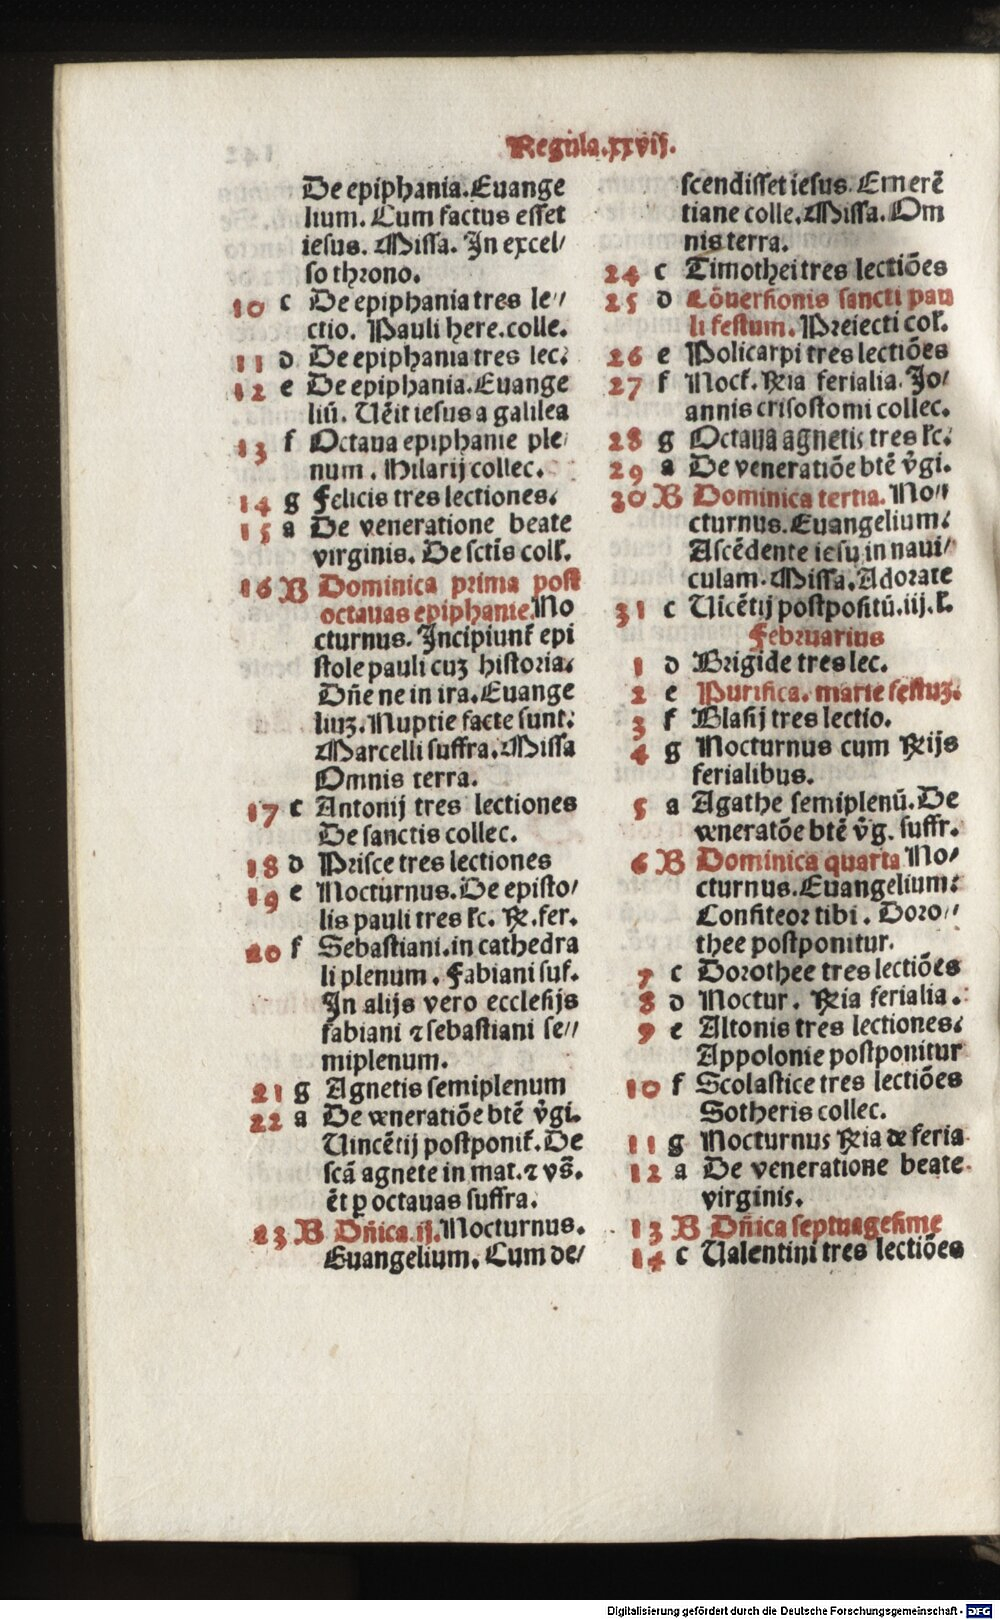 Regula.xxvij.
De epiphania. Euange
lium. Cum factus esset
iesus. Missa. In excel/
so throno.
10 c De epiphania tres le//
ctio. Pauli here. colle.
11 d De epiphania tres lec.
12 e De epiphania. Euange
liū. Uēit iesus a galilea
13 f Octaua epiphanie ple/
num. Hilarij collec.
14 g Felicis tres lectiones.
15 a De veneratione beate
virginis. De sctīs coll.
16 B Dominica prima post
octauas epiphanie. No
cturnus. Incipiunt epi
stole pauli cuz historia.
Dñe ne in ira. Euange
liuz. Nuptie facte sunt.
Marcelli suffra. Missa
Omnis terra.
17 c Antonij tres lectiones
De sanctis collec.
18 d Prisce tres lectiones
19 e Nocturnus. De episto/
lis pauli tres lc. R. fer.
20 f Sebastiani. in cathedra
li plenum. Fabiani suf.
In alijs vero ecclesijs
fabiani ⁊ sebastiani se//
miplenum.
21 g Agnetis semiplenum
22 a De veneratiōe btē v̄gi.
Uincētij postponit. De
scā agnete in mat. ⁊ vs̄.
ēt ꝑ octauas suffra.
23 B Dñica ij. Nocturnus.
Euangelium. Cum de/
scendisset iesus. Emerē
tiane colle. Missa. Om
nis terra.
24 c Timothei tres lectiōes
25 d Cōuersionis sancti pau
li festum. Preiecti col.
26 e Policarpi tres lectiōes
27 f Noct. Ria ferialia. Jo/
annis crisostomi collec.
28 g Octaua agnetis tres lc.
29 a De veneratiōe btē v̄gi.
30 B Dominica tertia. No//
cturnus. Euangelium.
Ascēdente iesu in naui/
culam. Missa. Adorate
31 c Uicētij postpositū. iij. l.
Februarius
1 d Brigide tres lec.
2 e Purifica. marie festuz.
3 f Blasij tres lectio.
4 g Nocturnus cum Rijs
ferialibus.
5 a Agathe semiplenū. De
veneratōe btē v̄g. suffr.
6 B Dominica quarta No/
cturnus. Euangelium.
Confiteor tibi. Doro//
thee postponitur.
7 c Dorothee tres lectiōes
8 d Noctur. Ria ferialia.
9 e Altonis tres lectiones.
Appolonie postponitur
10 f Scolastice tres lectiōes
Sotheris collec.
11 g Nocturnus Ria de feria
12 a De veneratione beate
virginis.
13 B Dñica septuagesime
14 c Ualentini tres lectiōes
Digitalisierung gefördert durch die Deutsche Forschungsgemeinschaft - DFG